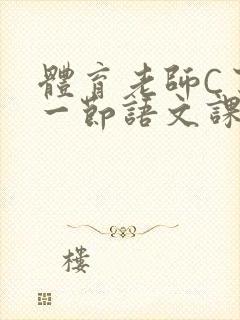 體育老師C
一節語文課
樓